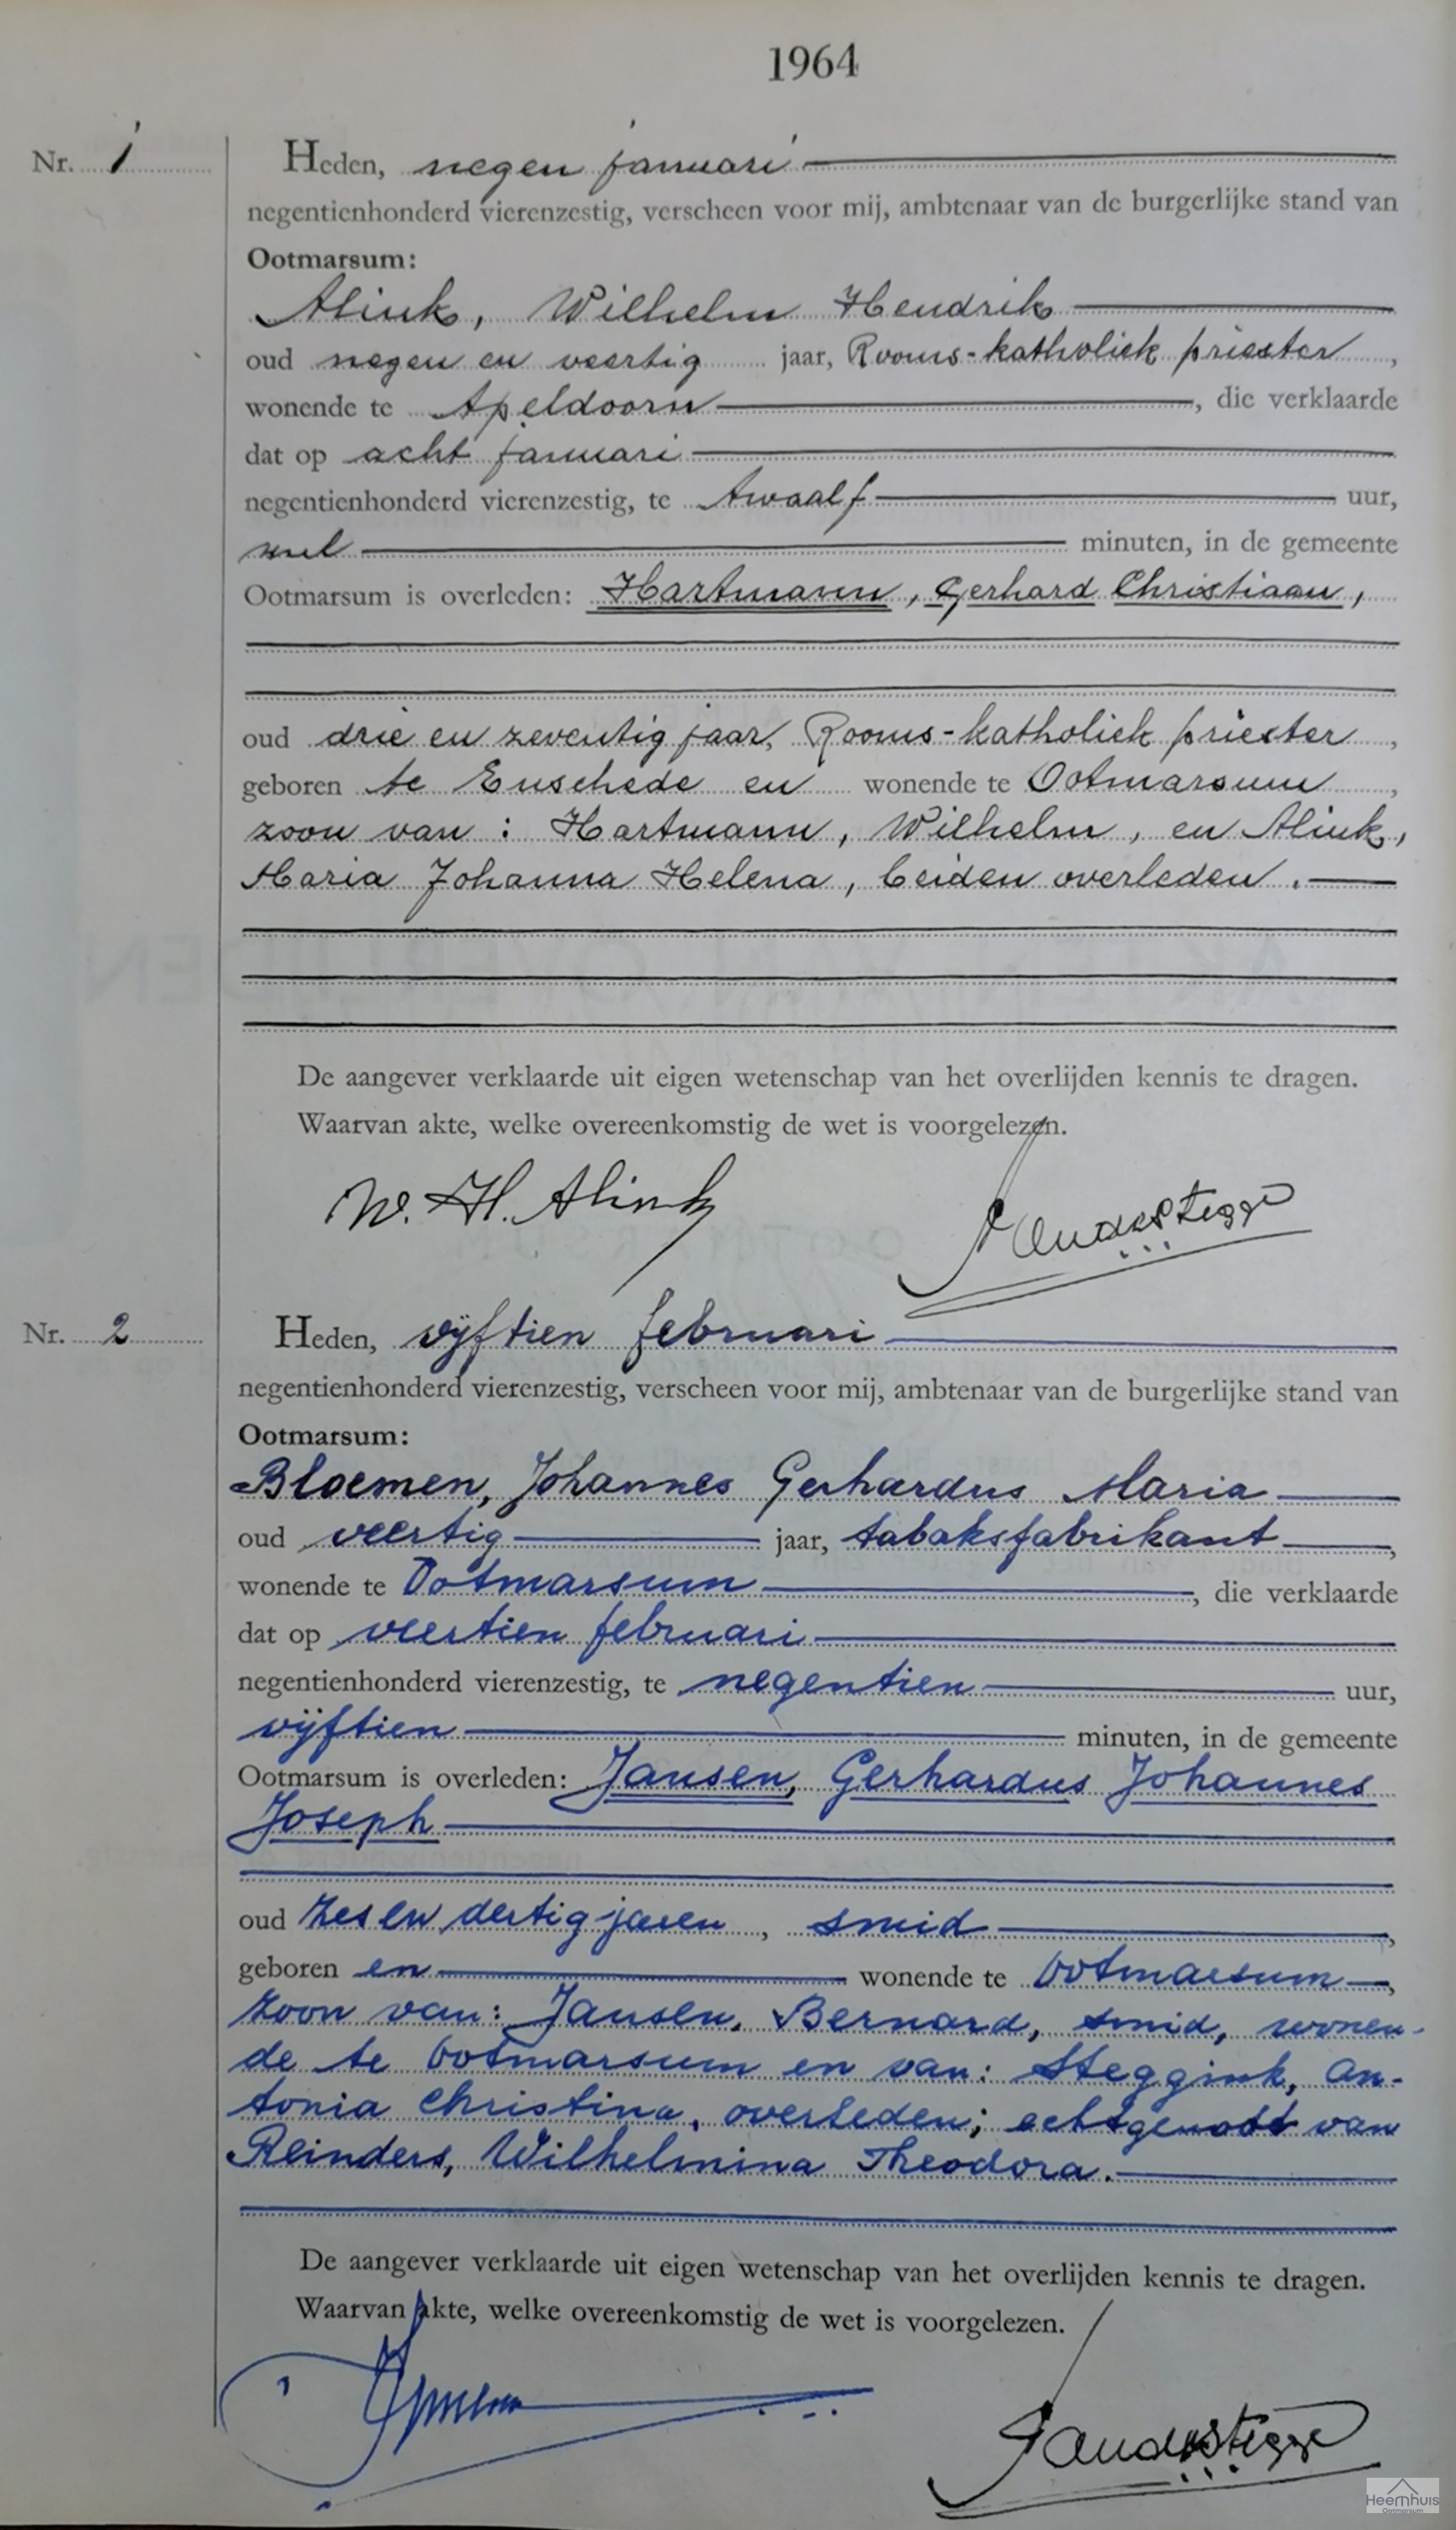 1964
Nr. 1
Heden, negen januari
negentienhonderd vierenzestig, verscheen voor mij, ambtenaar van de burgerlijke stand van
Ootmarsum:
Alink, Wilhelm Hendrik
oud negen en veertig jaar, Rooms-katholiek priester,
wonende te Apeldoorn, die verklaarde
dat op acht januari
negentienhonderd vierenzestig, te twaalf uur,
nul minuten, in de gemeente
Ootmarsum is overleden: Hartmann, Gerhard Christiaan,
oud drie en zeventig jaar, Rooms-katholiek priester,
geboren te Enschede en wonende te Ootmarsum,
zoon van: Hartmann, Wilhelm, en Alink,
Maria Johanna Helena, beiden overleden.
De aangever verklaarde uit eigen wetenschap van het overlijden kennis te dragen.
Waarvan akte, welke overeenkomstig de wet is voorgelezen.
W. H. Alink
Nr. 2
Heden, vijftien februari
negentienhonderd vierenzestig, verscheen voor mij, ambtenaar van de burgerlijke stand van
Ootmarsum:
Bloemen, Johannes Gerhardus Maria
oud veertig jaar, tabaksfabrikant,
wonende te Ootmarsum, die verklaarde
dat op veertien februari
negentienhonderd vierenzestig, te negentien uur,
vijftien minuten, in de gemeente
Ootmarsum is overleden: Jansen, Gerhardus Johannes
Joseph
oud zes en dertig jaren, smid,
geboren en wonende te Ootmarsum,
zoon van: Jansen, Bernard, smid, wonen-
de te Ootmarsum en van: Steggink, An-
tonia Christina, overleden; echtgenoot van
Reinders, Wilhelmina Theodora.
De aangever verklaarde uit eigen wetenschap van het overlijden kennis te dragen.
Waarvan akte, welke overeenkomstig de wet is voorgelezen.
Heemhuis
Ootmarsum